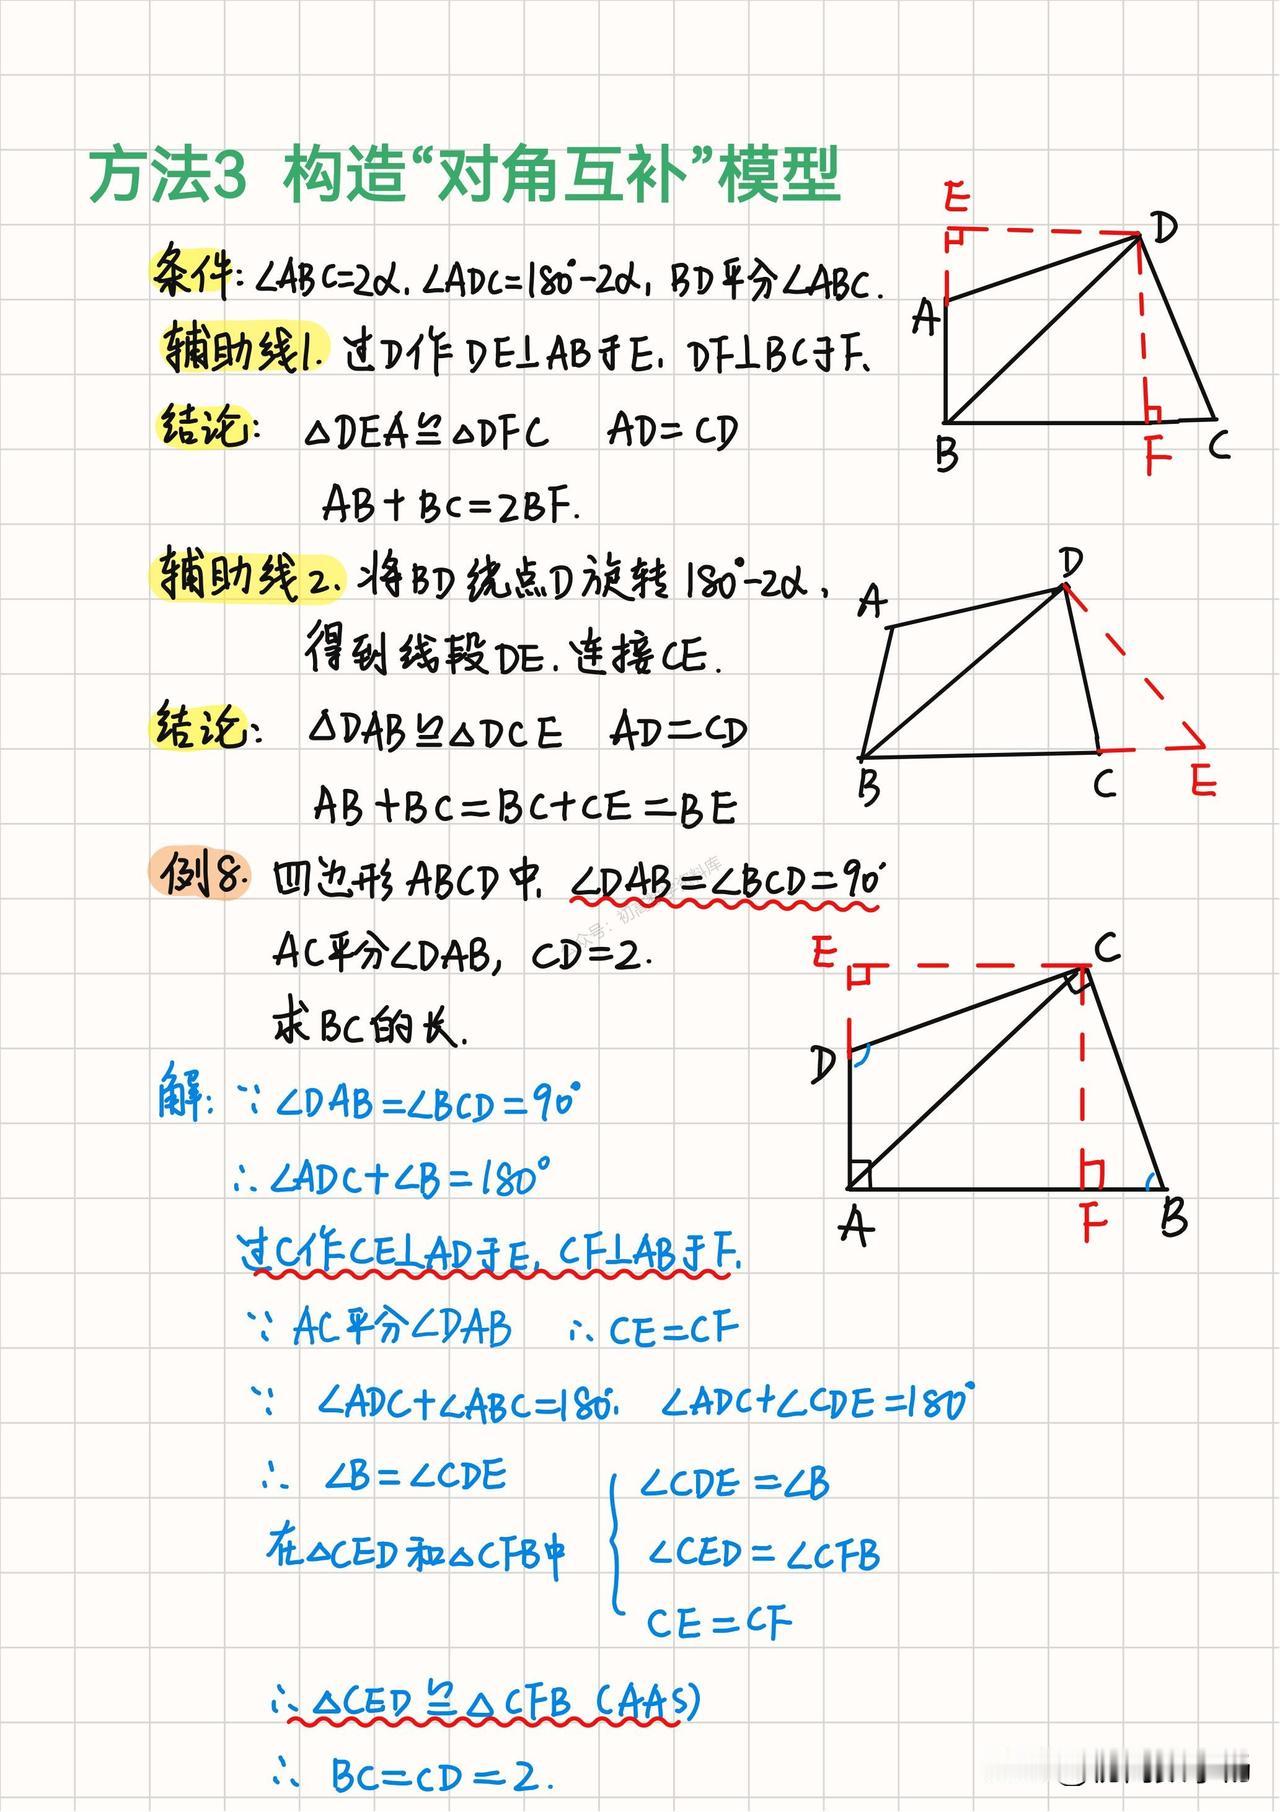 方法3 构造“对角互补”模型
条件: ∠ABC=2α, ∠ADC=180°-2α, BD平分∠ABC.
辅助线1. 过D作DE⊥AB于E, DF⊥BC于F.
结论: △DEA≌△DFC AD=CD
AB+BC=2BF.
E
D
A
B
F
C
辅助线2. 将BD绕点D旋转180°-2α,
得到线段DE, 连接CE.
结论: △DAB≌△DCE AD=CD
AB+BC=BC+CE=BE
D
A
B
C
E
例8. 四边形ABCD中, ∠DAB=∠BCD=90°
AC平分∠DAB, CD=2.
求BC的长.
E
C
D
A
F
B
解: ∵ ∠DAB=∠BCD=90°
∴ ∠ADC+∠B=180°
过C作CE⊥AD于E, CF⊥AB于F.
∵ AC平分∠DAB ∴ CE=CF
∵ ∠ADC+∠ABC=180°, ∠ADC+∠CDE=180°
∴ ∠B=∠CDE
在△CED和△CFB中
∠CDE=∠B
∠CED=∠CFB
CE=CF
∴ △CED≌△CFB (AAS)
∴ BC=CD=2.